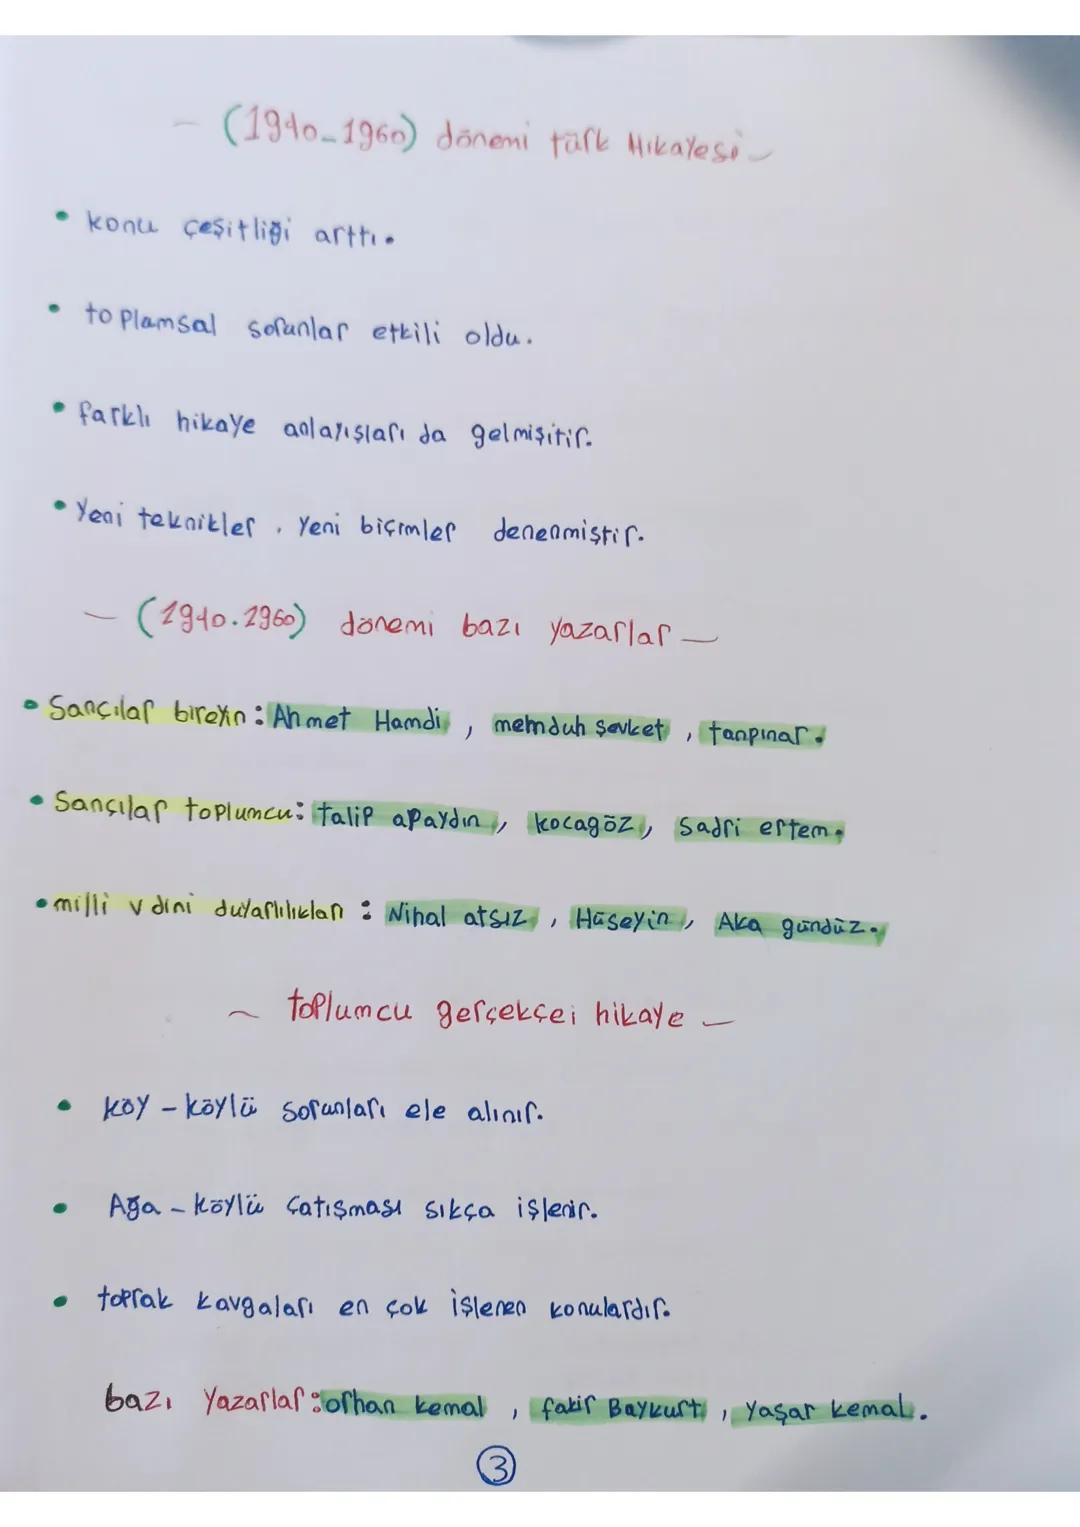 (1940-1960) dönemi türk Hikayesi
• konu çeşitliği arttı.
• toplamsal sorunlar etkili oldu.
• farklı hikaye anlayışları da gelmişitir.
• Yeni teknikler, Yeni biçimler denenmiştir.
(1940.1960) dönemi bazı yazarlar
• Sançılar bireyin: Ahmet Hamdi, memduh şevket, tanpınar.
• Sançılar toplumcu: talip apaydın, kocagöz, Sadri ertem.
• milli v dini duyarlılıkları: Nihal atsız, Hüseyin, Aka gündüz.
toplumcu gerçekçei hikaye
• köy - köylü sorunları ele alınır.
• Ağa - köylü çatışması sıkça işlenir.
• toprak kavgaları en çok işlenen konulardır.
bazı Yazarlar: orhan kemal, fakir Baykurt, Yaşar kemal.
3